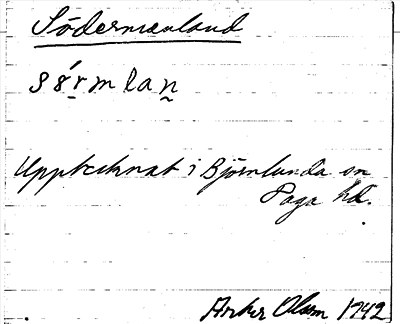 Södermanland
sörmlan
Upptecknat i Björnlunda sn
Daga hd.
Olsson 1942